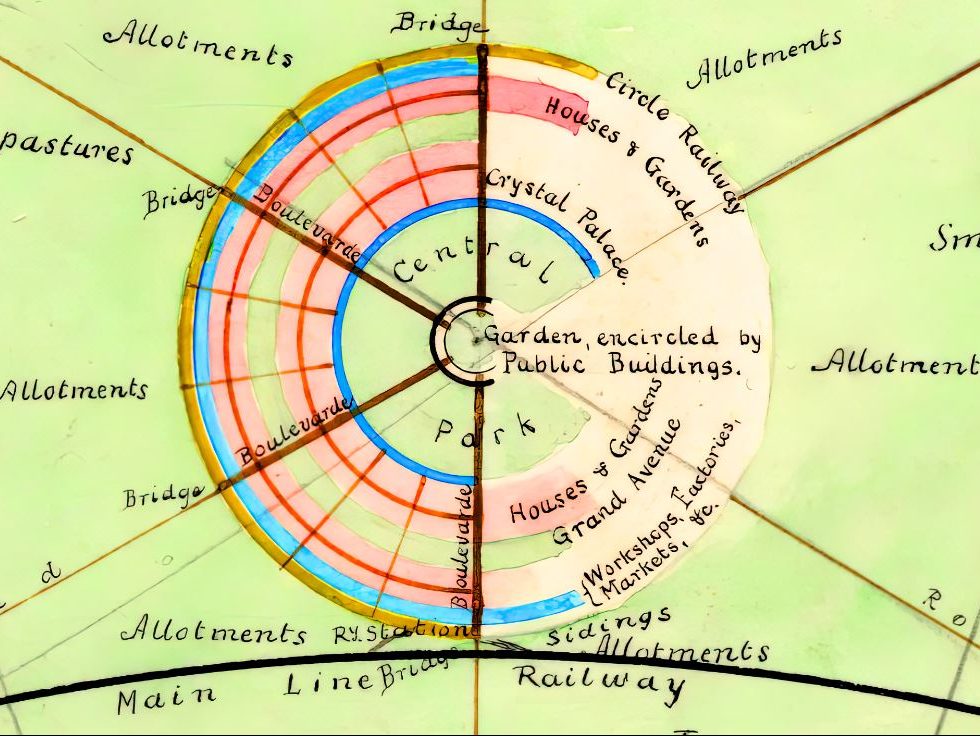 Bridge
Allotments
Allotments
Circle Railway
Houses & Gardens
pastures
Bridge
Boulevarde
Crystal Palace.
Central
Sm
Garden, encircled by
Public Buildings.
Allotments
Allotment
Park
Boulevarde
Houses & Gardens
Grand Avenue
Bridge
Boulevarde
Workshops, Factories,
Markets, &c.
d
Ro
Allotments
Ry. Station
Sidings
Allotments
Bridge
Main Line Railway